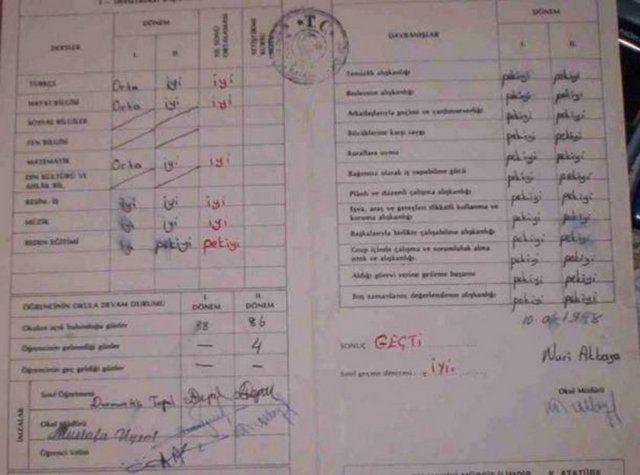 DERSLER
DÖNEM
I.
II.
YIL SONU
ORTALAMASI
TÜRKÇE Orta iyi iyi
HAYAT BİLGİSİ Orta iyi iyi
SOSYAL BİLGİLER
FEN BİLGİSİ
MATEMATİK Orta iyi iyi
DİN KÜLTÜRÜ VE
AHLÂK BİL.
RESİM - İŞ iyi iyi iyi
MÜZİK iyi iyi iyi
BEDEN EĞİTİMİ iyi pekiyi pekiyi
ÖĞRENCİNİN OKULA DEVAM DURUMU
I.
DÖNEM
II.
DÖNEM
Okulun açık bulunduğu günler 88 86
Öğrencinin gelmediği günler — 4
Öğrencinin geç geldiği günler — —
İMZALAR
Sınıf Öğretmeni
Okul Müdürü
Mustafa
Öğrenci Velisi
T.C.
DAVRANIŞLAR
DÖNEM
I.
II.
Temizlik alışkanlığı pekiyi pekiyi
Beslenme alışkanlığı pekiyi pekiyi
Arkadaşlarıyla geçimi ve yardımseverliği pekiyi pekiyi
Büyüklerine karşı saygı pekiyi pekiyi
Kurallara uyma pekiyi pekiyi
Bağımsız olarak iş yapabilme gücü pekiyi pekiyi
Plânlı ve düzenli çalışma alışkanlığı pekiyi pekiyi
Eşya, araç ve gereçleri dikkatli kullanma ve
koruma alışkanlığı pekiyi pekiyi
Başkalarıyla birlikte çalışabilme alışkanlığı pekiyi pekiyi
Grup içinde çalışma ve sorumluluk alma
istek ve alışkanlığı pekiyi pekiyi
Aldığı görevi yerine getirme başarısı pekiyi pekiyi
Boş zamanlarını değerlendirme alışkanlığı pekiyi pekiyi
SONUÇ GEÇTİ
Sınıf geçme derecesi : iyi.
Nuri Akkaya
Okul Müdürü
K. ATATÜRK